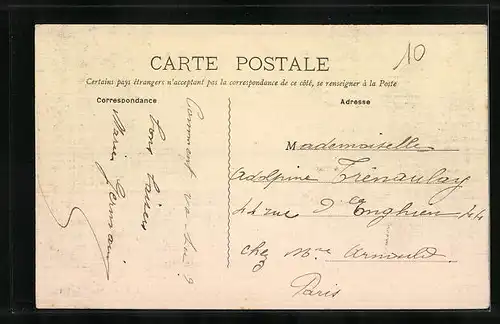 10
CARTE POSTALE
Certains pays étrangers n'acceptant pas la correspondance de ce côté, se renseigner à la Poste
Correspondance
Comment va
Bons baisers
Marie Germain
Adresse
Mademoiselle
Adolpine Trenaulay
44 rue d'Enghien 44
chez Mme Arnould
Paris